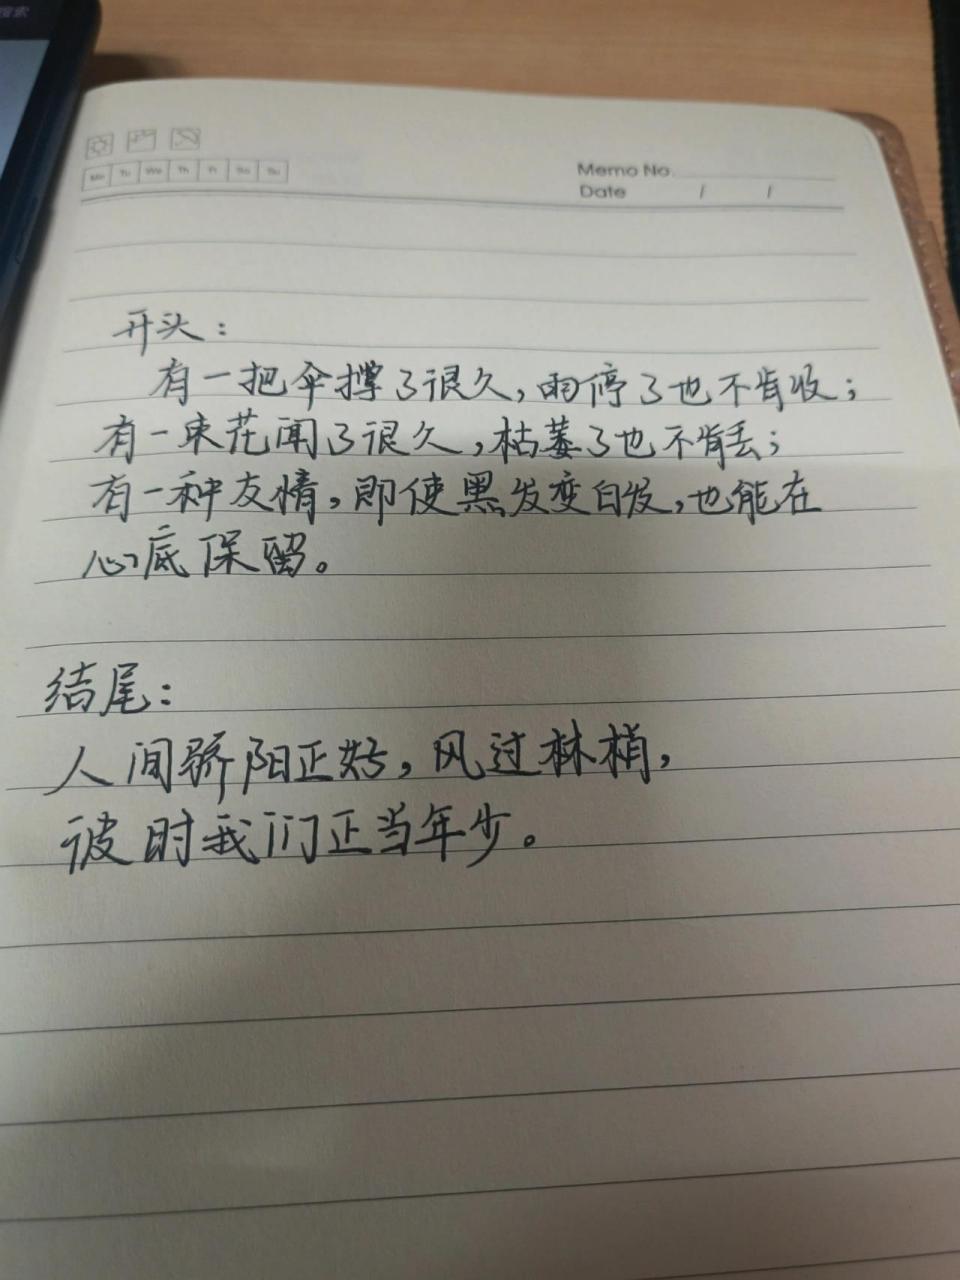 搜索
Mo Tu We Th Fr Sa Su
Memo No.
Date / /
开头：
有一把伞撑了很久，雨停了也不肯收；
有一束花闻了很久，枯萎了也不肯丢；
有一种友情，即使黑发变白发，也能在
心底保留。
结尾：
人间骄阳正好，风过林梢，
彼时我们正当年少。